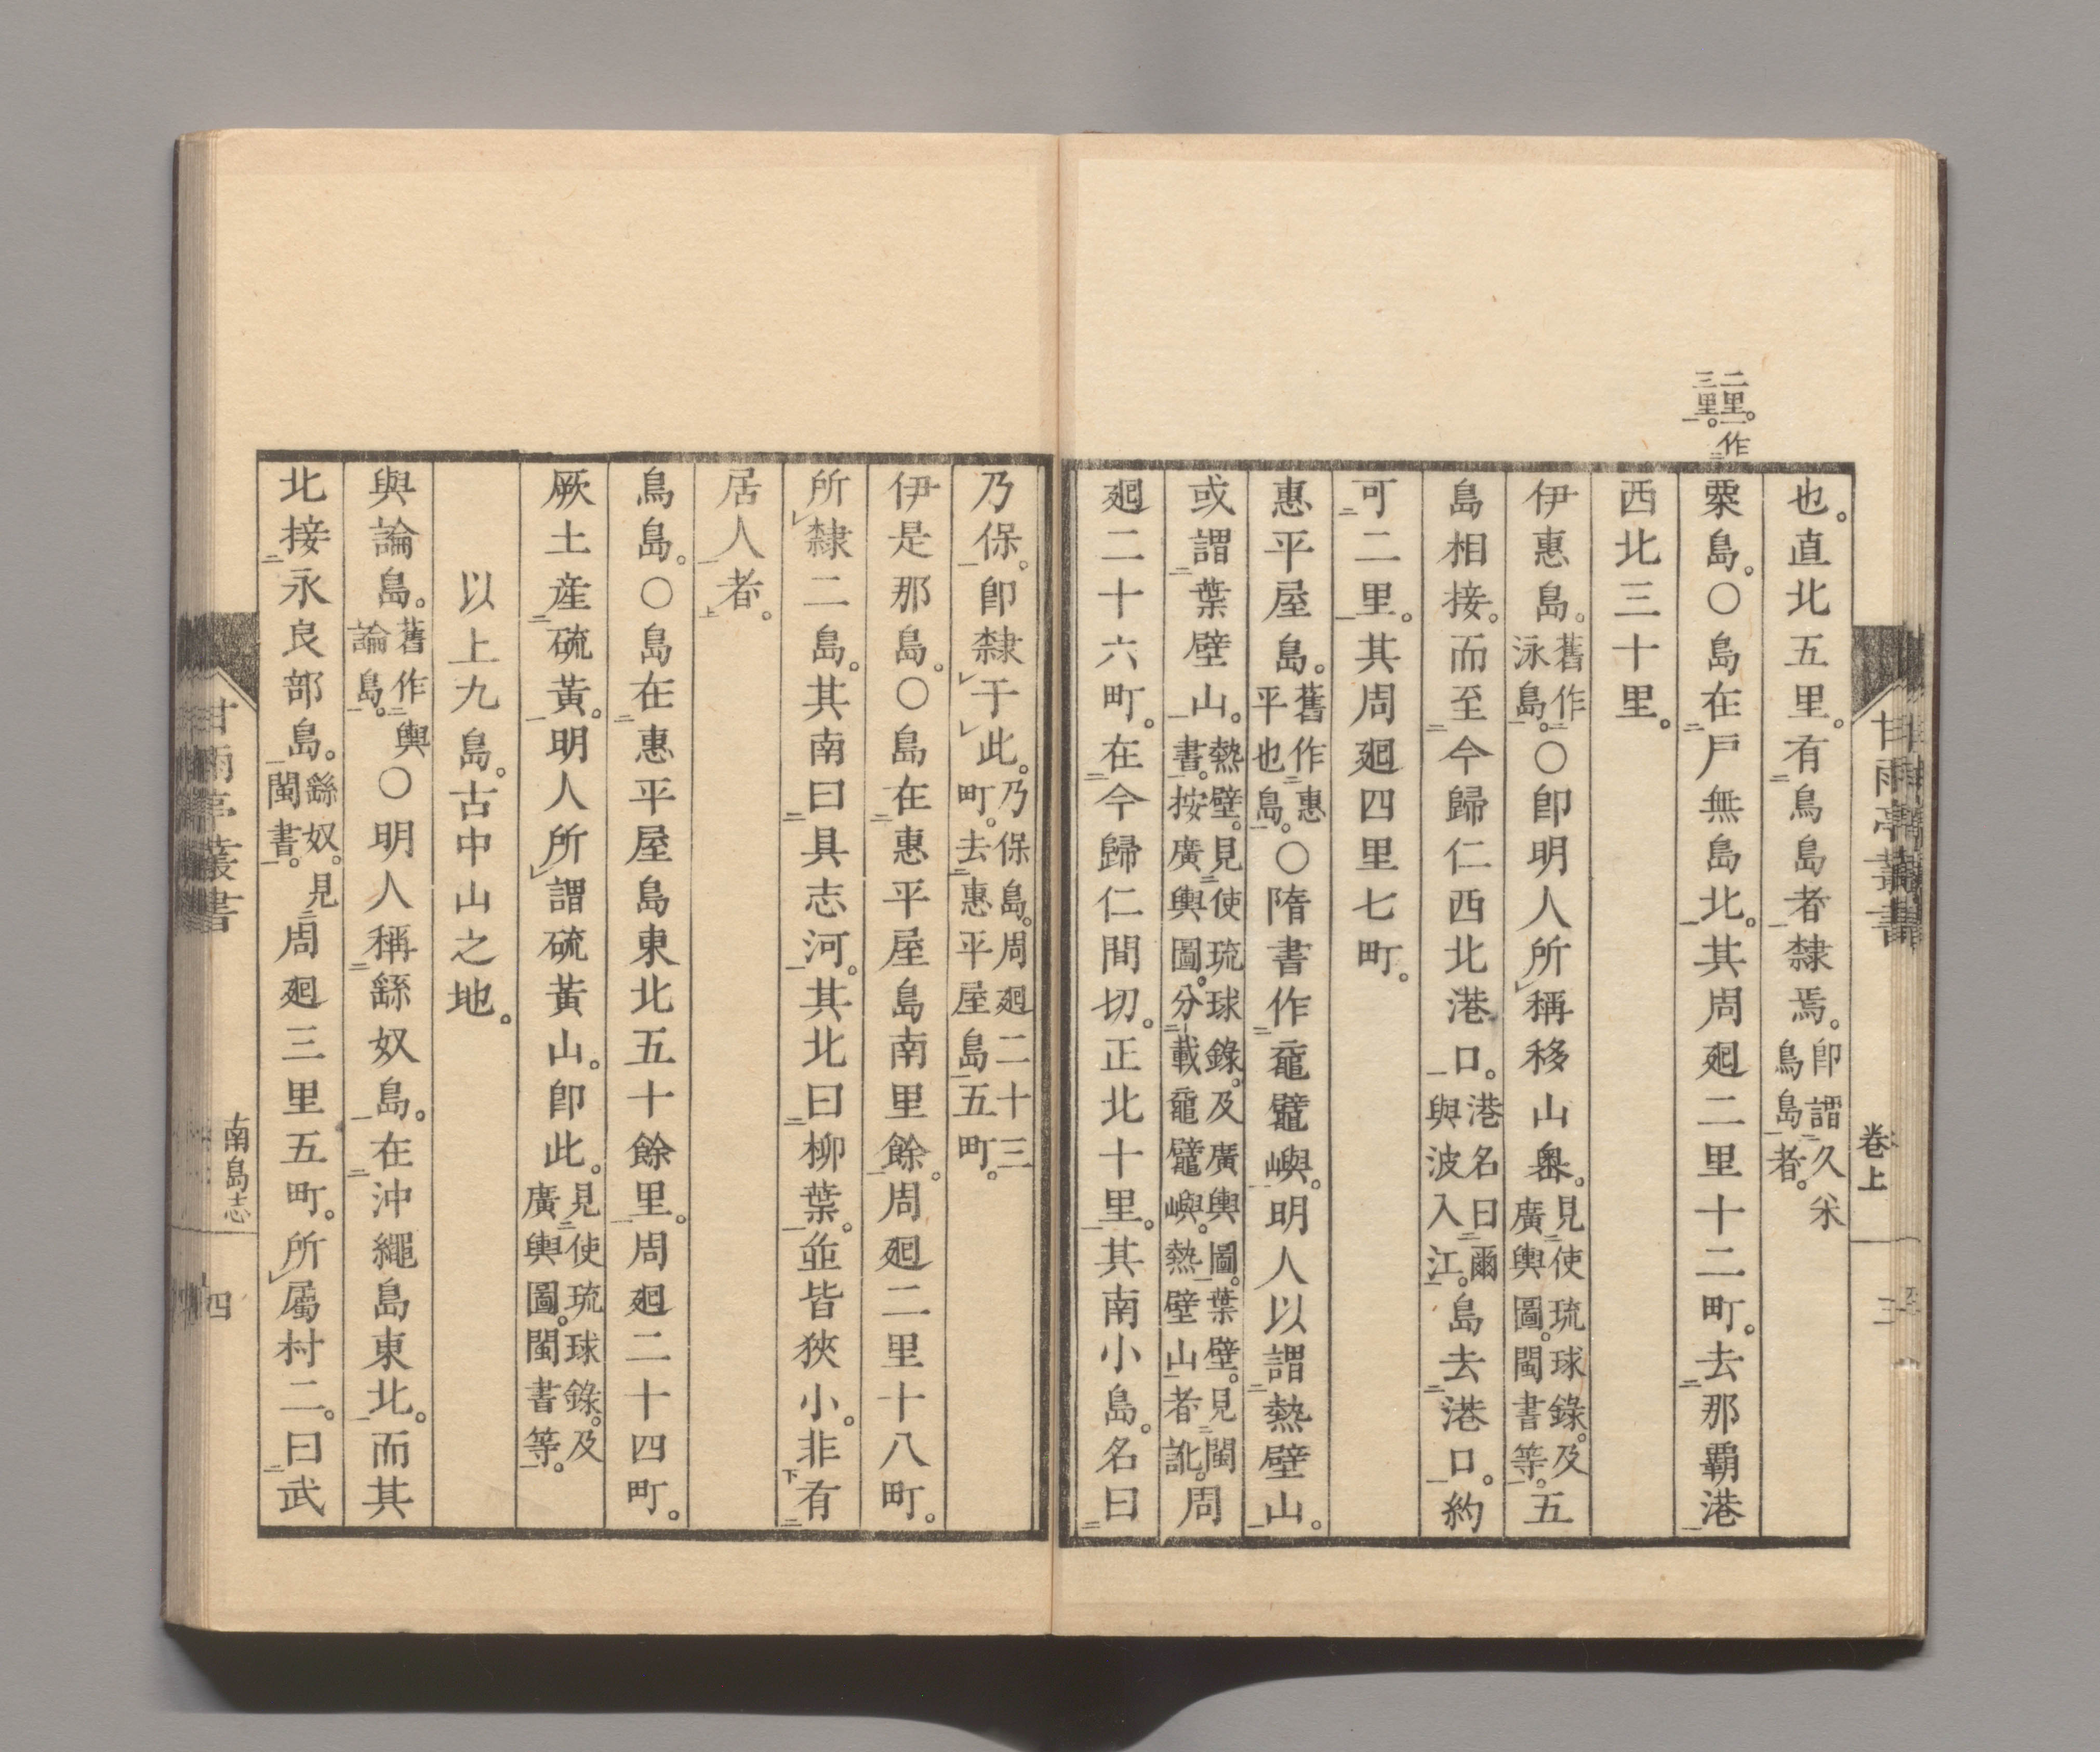 二里。一作
三里。
也。直北五里。有鳥島者隸焉。卽謂久米鳥島者。
粟島。○島在戶無島北。其周廻二里十二町。去那覇港
西北三十里。
伊惠島。舊作泳島。○卽明人所稱移山奧。見使琉球錄。及廣輿圖。閩書等。五
島相接。而至今歸仁西北港口。港名曰爾與波入江。島去港口。約
可二里。其周廻四里七町。
惠平屋島。舊作惠平也島。○隋書作鼊嶼。明人以謂熱壁山。
或謂葉壁山。熱壁。見使琉球錄。及廣輿圖。葉壁。見閩書。按廣輿圖。分載鼊嶼。熱壁山者訛。周
廻二十六町。在今歸仁間切。正北十里。其南小島。名曰
乃保。卽隸于此。乃保島。周廻二十三町。去惠平屋島五町。
伊是那島。○島在惠平屋島南里餘。周廻二里十八町。
所隸二島。其南曰具志河。其北曰柳葉。並皆狹小。非有
居人者。
鳥島。○島在惠平屋島東北五十餘里。周廻二十四町。
厥土産硫黃。明人所謂硫黃山。卽此。見使琉球錄。及廣輿圖。閩書等。
以上九島。古中山之地。
與論島。舊作輿論島。○明人稱繇奴島。在沖繩島東北。而其
北接永良部島。繇奴。見閩書。周廻三里五町。所屬村二。曰武
甘雨亭叢書
卷上
三
甘雨亭叢書
南島志
四